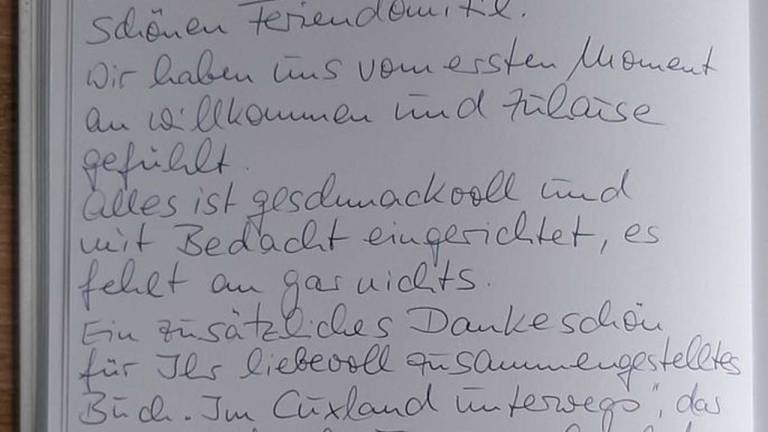 schönen Feriendomizil.
Wir haben uns vom ersten Moment
an willkommen und zuhause
gefühlt.
Alles ist geschmackvoll und
mit Bedacht eingerichtet, es
fehlt an gar nichts.
Ein zusätzliches Dankeschön
für Ihr liebevoll zusammengestelltes
Buch "Im Cuxland unterwegs", das